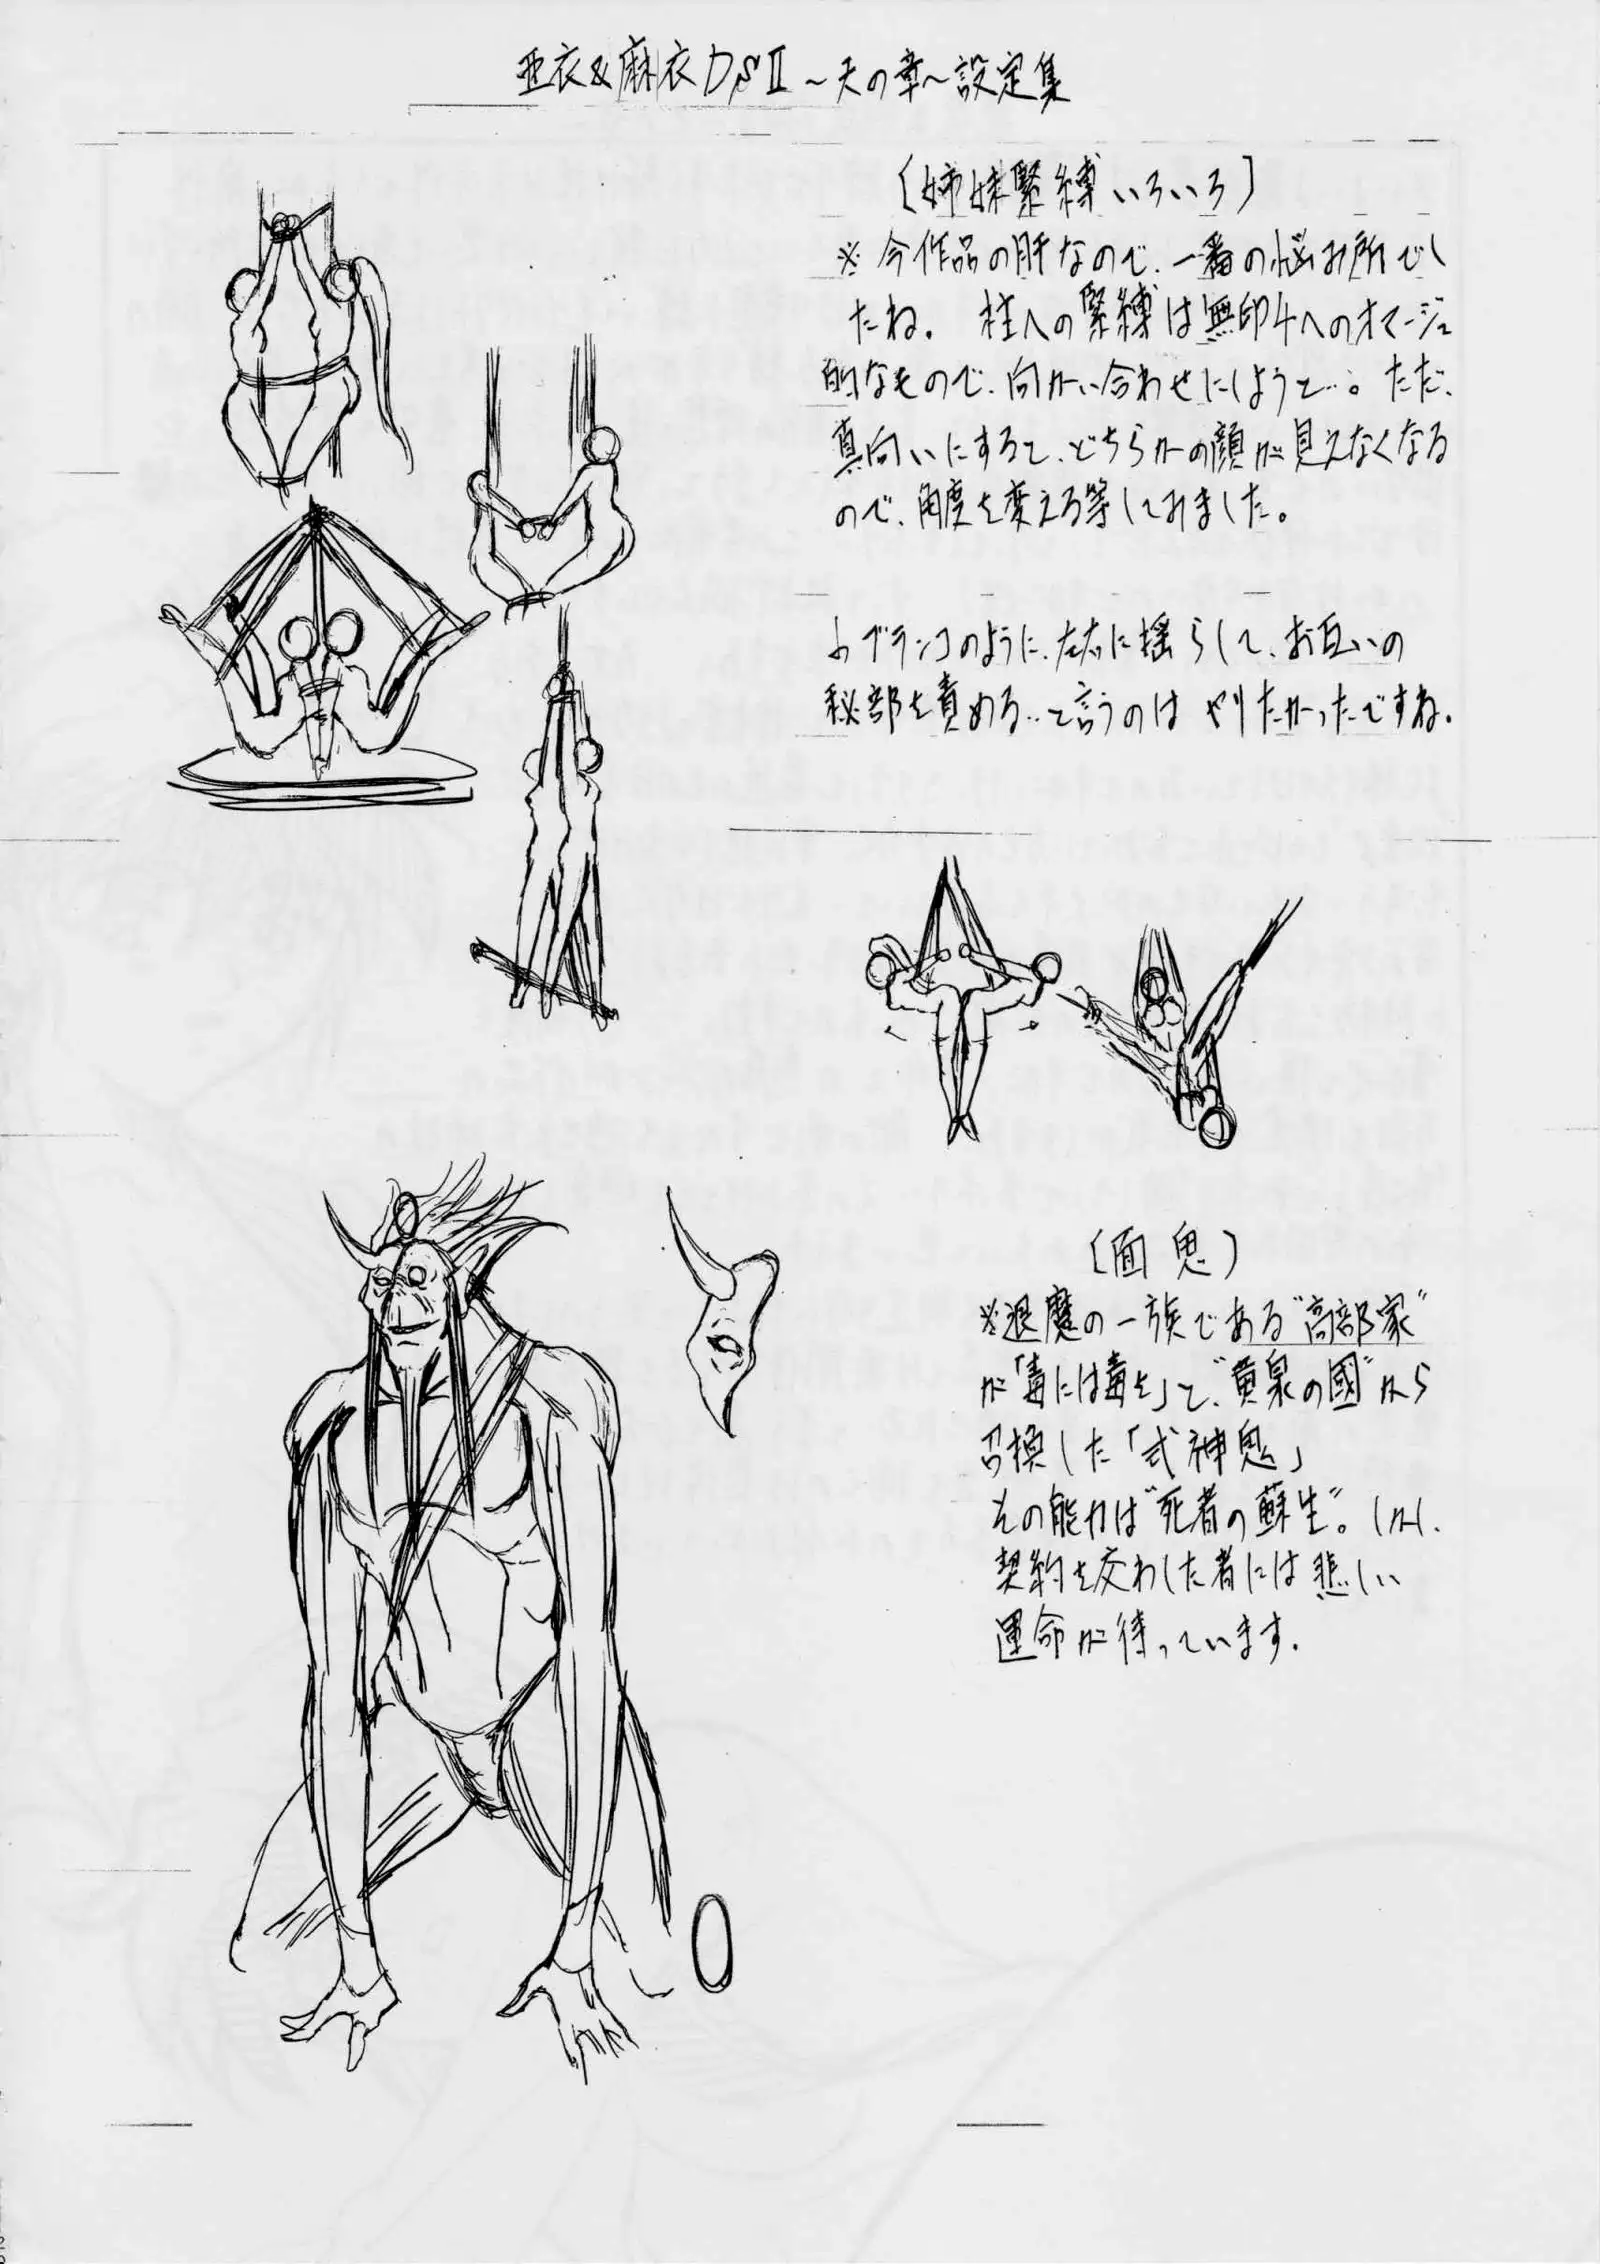 亜衣&麻衣DSⅡ～天の章～設定集
〔姉妹緊縛いろいろ〕
※今作品の肝なので、一番の悩み所でし
たね。 柱への緊縛は無印4へのオマージュ
的なもので、向かい合わせにしようと…。ただ、
真向いにすると、どちらかの顔が見えなくなる
ので、角度を変える等してみました。
ブランコのように、左右に揺らして、お互いの
秘部を責める…と言うのは やりたかったですね。
〔面鬼〕
※退魔の一族である“高部家”
が「毒には毒を」と、“黄泉の國”から
召換した「式神鬼」
その能力は“死者の蘇生”。しかし、
契約を交わした者には悲しい
運命が待っています。